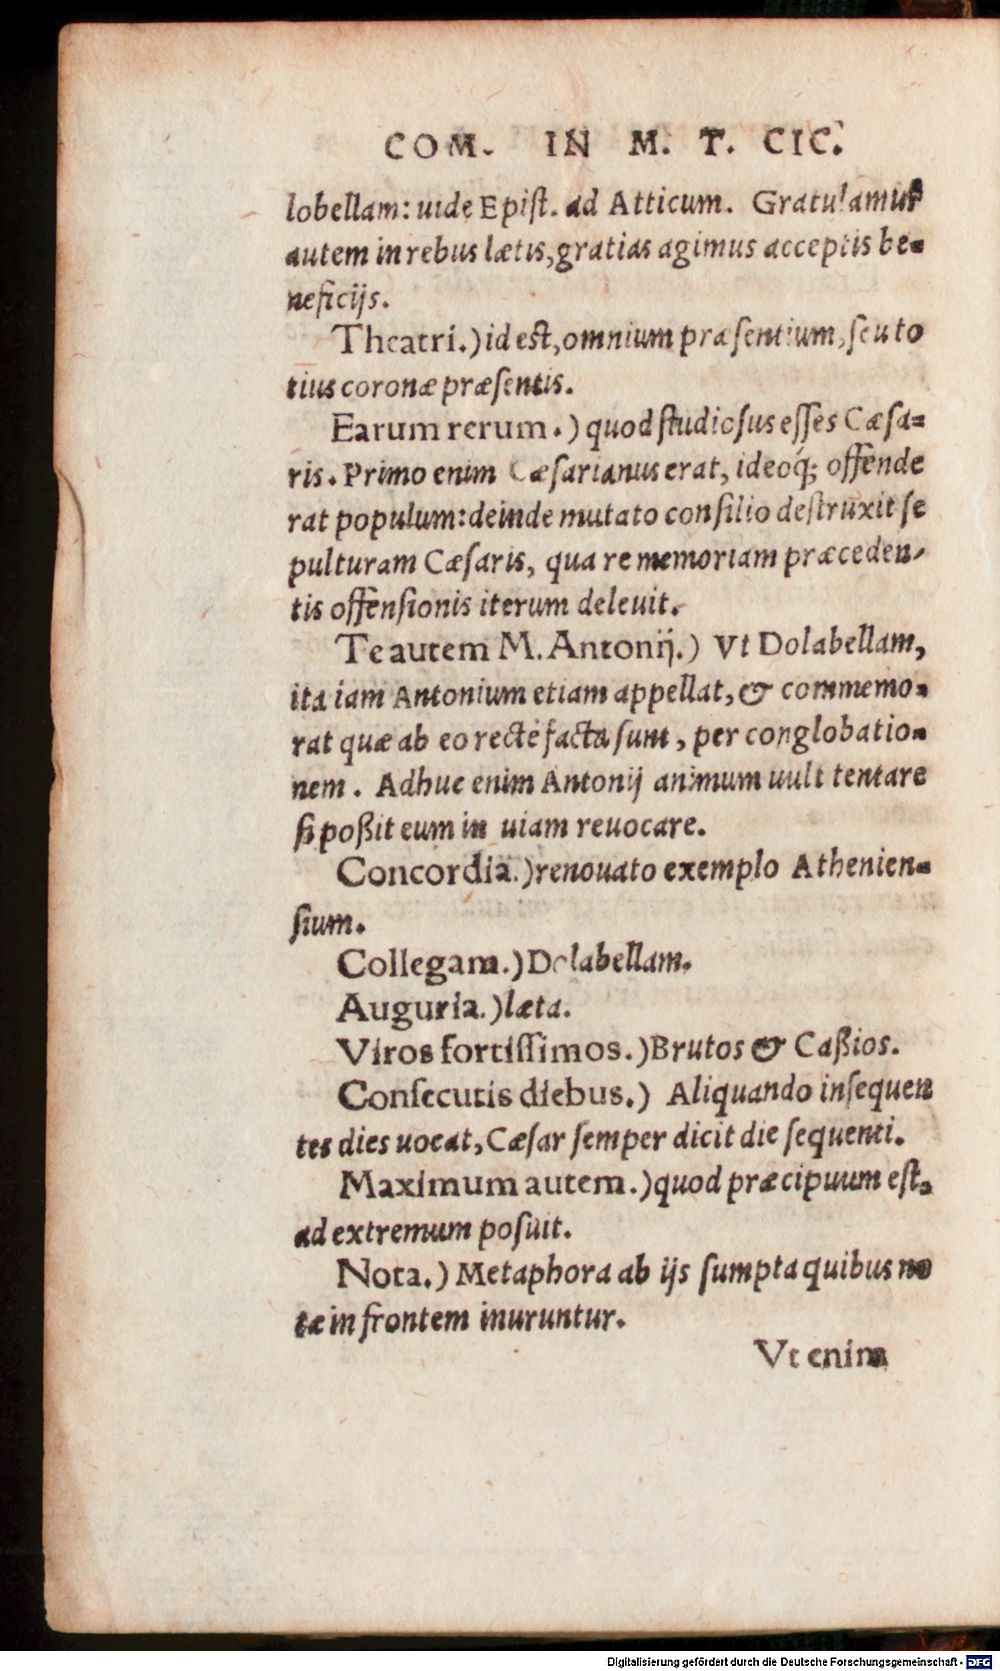 COM. IN M. T. CIC.
lobellam: uide Epiſt. ad Atticum. Gratulamur
autem in rebus lætis, gratias agimus acceptis be-
neficijs.
Theatri.) id eſt, omnium præſentium, ſeu to
tius coronæ præſentis.
Earum rerum.) quod ſtudioſus eſſes Cæſa-
ris. Primo enim Cæſarianus erat, ideoq́; offende
rat populum: deinde mutato conſilio deſtruxit ſe
pulturam Cæſaris, qua re memoriam præceden-
tis offenſionis iterum deleuit.
Te autem M. Antonij.) Vt Dolabellam,
ita iam Antonium etiam appellat, & commemo-
rat quæ ab eo rectè facta ſunt, per conglobatio-
nem. Adhuc enim Antonij animum uult tentare
ſi poßit eum in uiam reuocare.
Concordia.) renouato exemplo Athenien-
ſium.
Collegam.) Dolabellam.
Auguria.) læta.
Viros fortiſſimos.) Brutos & Caßios.
Conſecutis diebus.) Aliquando inſequen
tes dies uocat, Cæſar ſemper dicit die ſequenti.
Maximum autem.) quod præcipuum eſt,
ad extremum poſuit.
Nota.) Metaphora ab ijs ſumpta quibus no
tæ in frontem inuruntur.
Vt enim
Digitalisierung gefördert durch die Deutsche Forschungsgemeinschaft - DFG